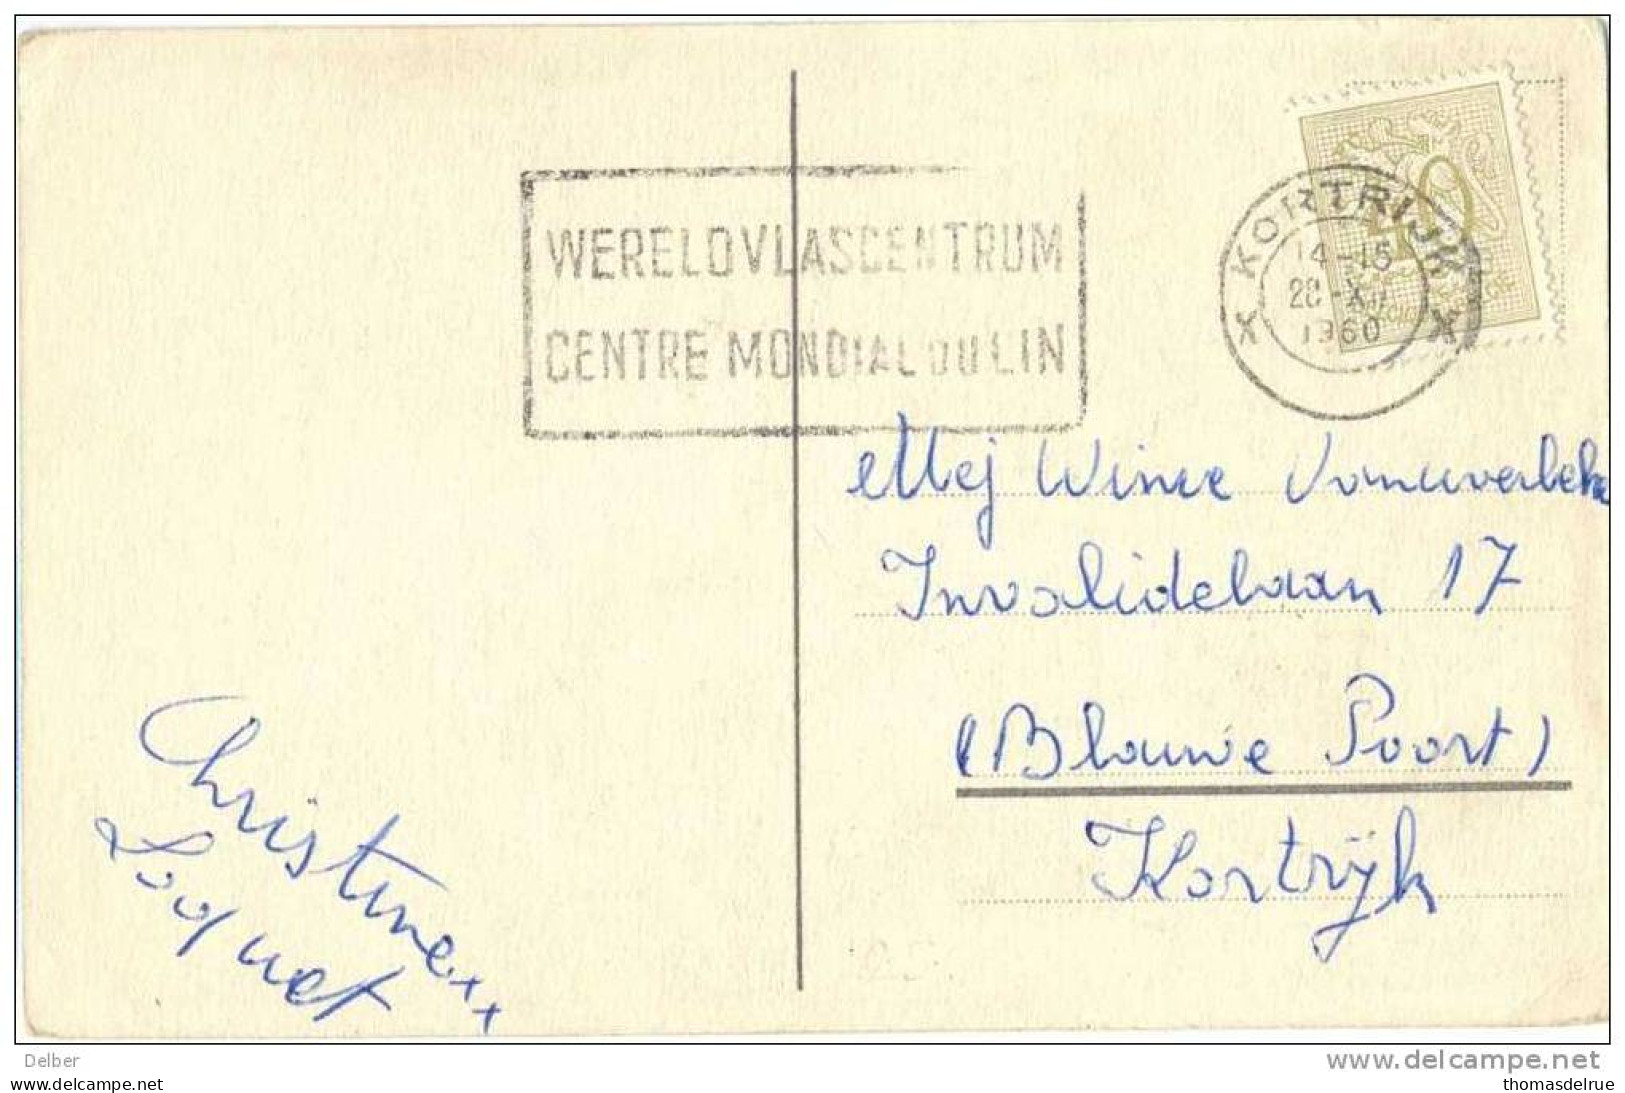 WERELDVLASCENTRUM
CENTRE MONDIAL DU LIN
KORTRIJK
14-15
28-XII
1960
X X
40
Mej Winne Vanuverbeke
Invalidelaan 17
(Blauwe Poort)
Kortrijk
Christine xx
Loquet
Delber
www.delcampe.net
posted by www.delcampe.net
thomasdelrue